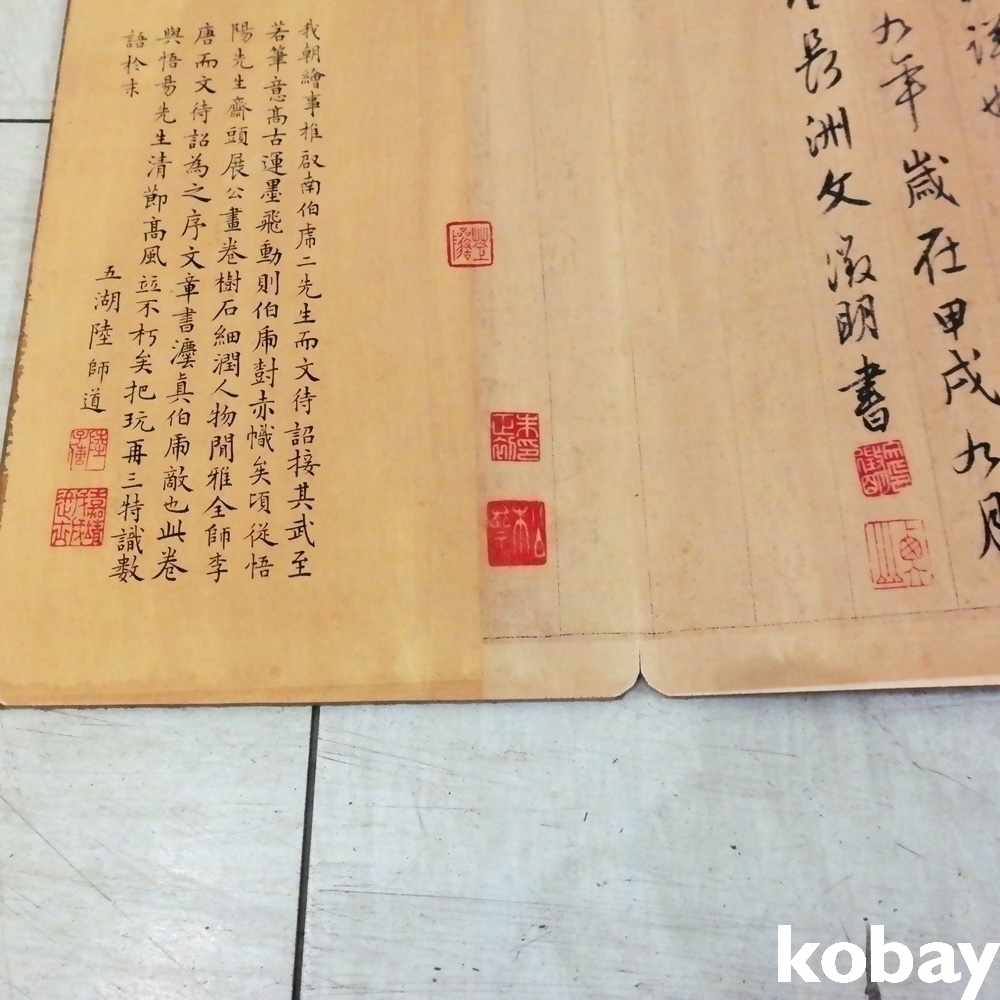 詳也
九年歲在甲戌九月
長洲文徵明書
我朝繪事推啟南伯虎二先生而文待詔接其武至
若筆意高古運墨飛動則伯虎對赤幟矣頃從悟
陽先生齋頭展公畫卷樹石細潤人物閒雅全師李
唐而文待詔為之序文章書灋真伯虎敵也此卷
與悟昜先生清節高風竝不朽矣把玩再三特識數
語於末
五湖陸師道
kobay